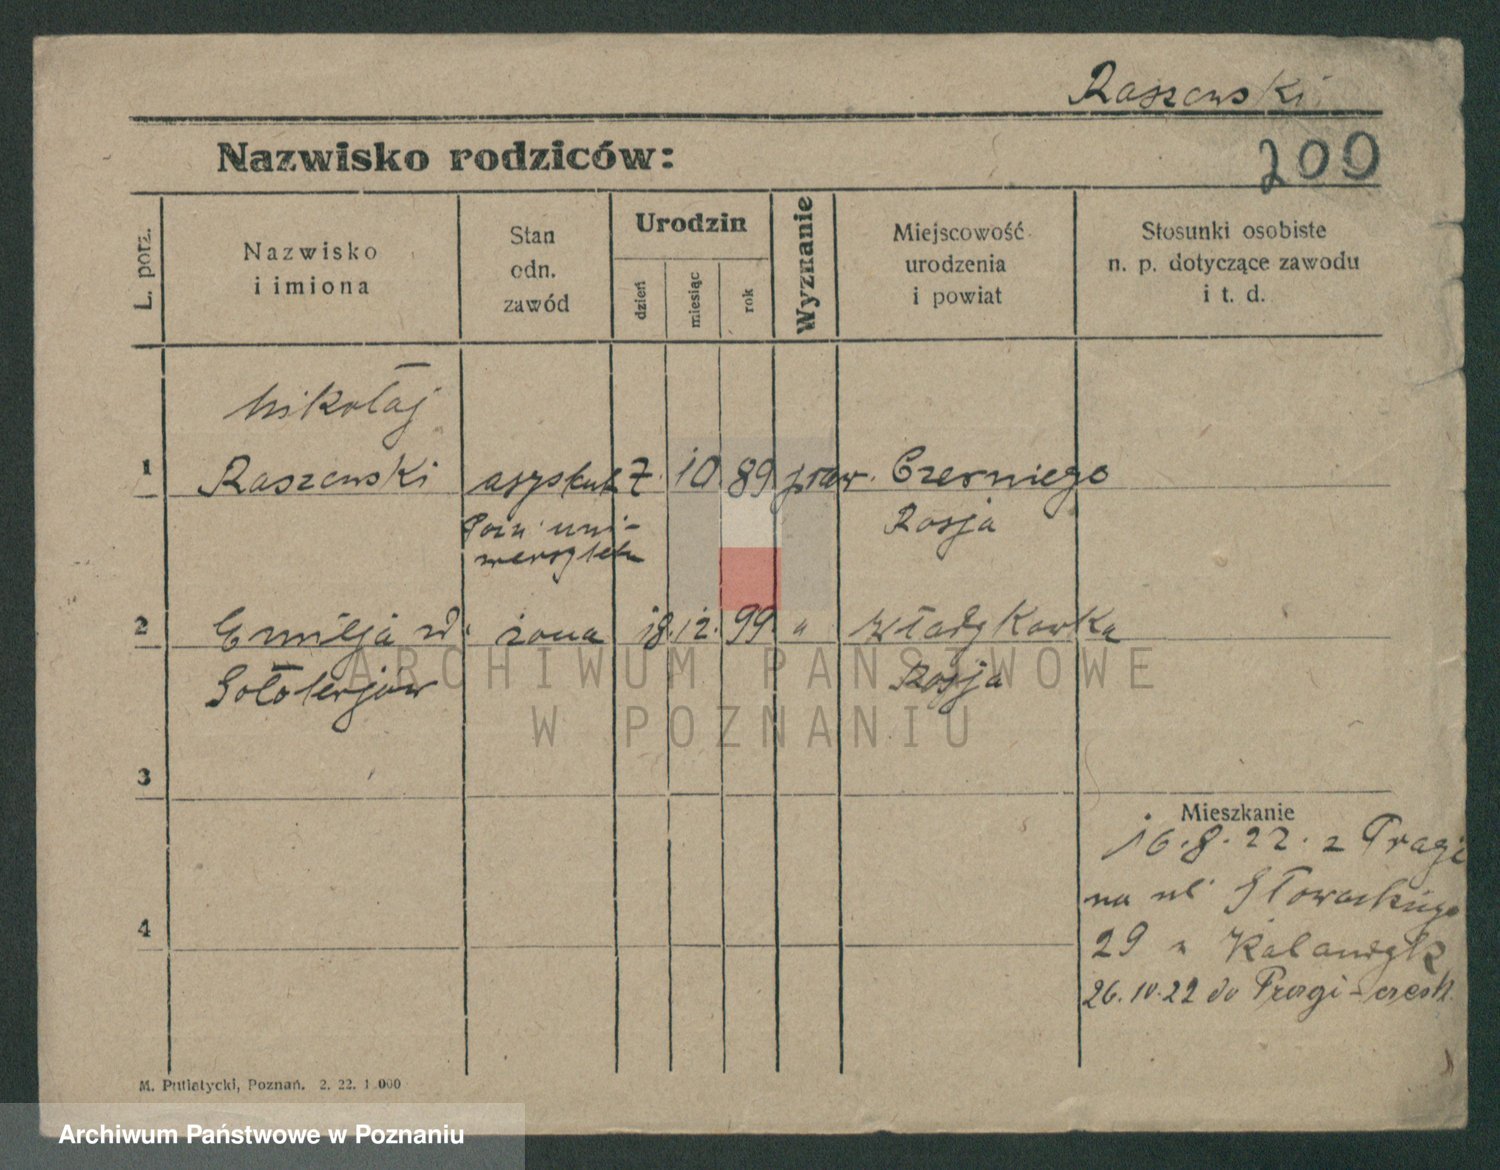 Raszewski
Nazwisko rodziców:
200
L. porz.
Nazwisko
i imiona
Stan
odn.
zawód
Urodzin
dzień
miesiąc
rok
Wyznanie
Miejscowość
urodzenia
i powiat
Stosunki osobiste
n. p. dotyczące zawodu
i t. d.
Mikołaj
1 Raszewski asystent 7. 10 89 praw. Czerniego
uni-
wersytetu
Rosja
2 Emilja żona 18. 12. 99. " Władykawka
Rosja
ARCHIWUM PAŃSTWOWE
W POZNANIU
3
Mieszkanie
16. 8. 22. z Pragi
na ul. Słowackiego
29
4
26. 10. 22 do Pragi - czesk.
M. Putiatycki, Poznań. 2. 22. 1.000
Archiwum Państwowe w Poznaniu